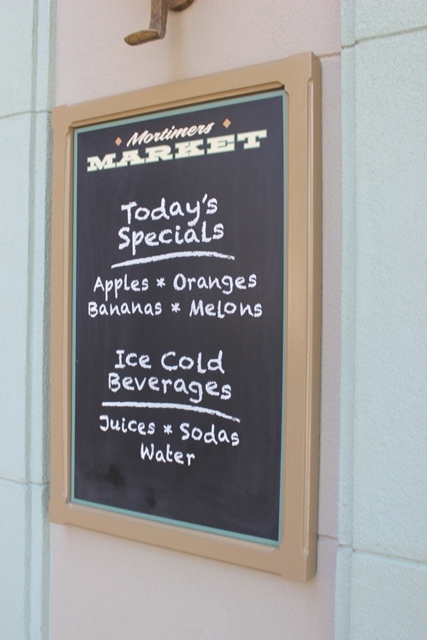 Mortimers
MARKET
Today's
Specials
Apples * Oranges
Bananas * Melons
Ice Cold
Beverages
Juices * Sodas
Water